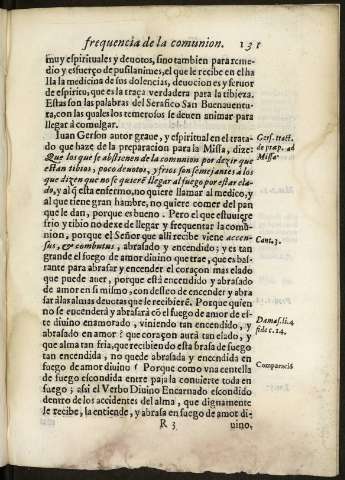 frequencia de la comunion. 131
muy espirituales y deuotos, sino tambien para reme-
dio y esfuerço de pusilanimes, el que le recibe en el ha
lla la medicina de sus dolencias, deuocion es y feruor
de espiritu, que es la traça verdadera para la tibieza.
Estas son las palabras del Serafico San Buenauentu-
ra, con las quales los temerosos se deuen animar para
llegar à comulgar.
Iuan Gerson autor graue, y espiritual en el trata-
do que haze de la preparacion para la Missa, dize:
Que los que se abstienen de la comunion por dezir que
estàn tibios, poco deuotos, y frios son semejantes à los
que dizen que no se quierē llegar al fuego por estar ela-
do, y al q̃ esta enfermo, no quiere llamar al medico, y
al que tiene gran hambre, no quiere comer del pan
que le dan, porque es bueno. Pero el que estuuiere
frio y tibio no dexe de llegar y frequentar la comu-
nion, porque el Señor que alli recibe viene accen-
sus, & combutus, abrasado y encendido; y es tan
grande el fuego de amor diuino que trae, que es bas-
tante para abrasar y encender el coraçon mas elado
que puede auer, porque està encendido y abrasado
de amor en si mismo, con desseo de encender y abra
sar à las almas deuotas que le recibierē. Porque quien
no se encenderà y abrasarà cō el fuego de amor de es-
te diuino enamorado, viniendo tan encendido, y
abrasado en amor? que coraçon aurà tan elado, y
que alma tan fria, que recibiendo esta brasa de fuego
tan encendida, no quede abrasada y encendida en
fuego de amor diuino? Porque como vna centella
de fuego escondida entre paja la conuierte toda en
fuego; assi el Verbo Diuino Encarnado escondido
dentro de los accidentes del alma, que dignamente
le recibe, la entiende, y abrasa en fuego de amor di-
R 3 uino,
Gers. tract.
de præp. ad
Missa
Cant. 3.
Damas. li. 4
fide c. 14.
Comparació